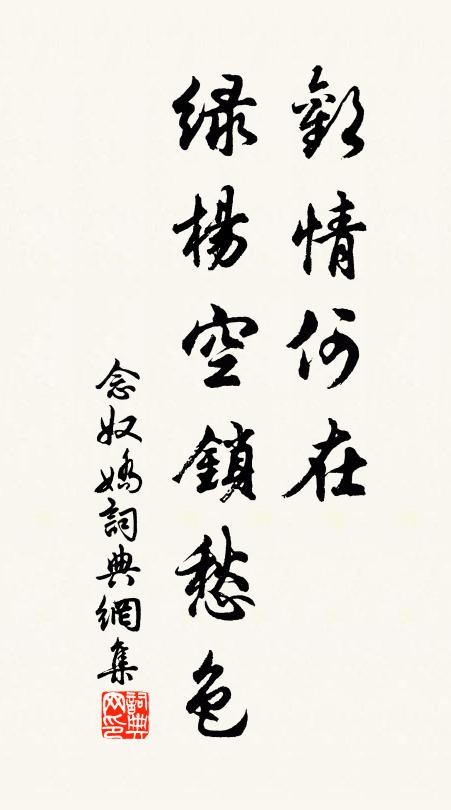 歡情何在
綠楊空鎖愁色
念奴嬌詞典網集
詞典网印